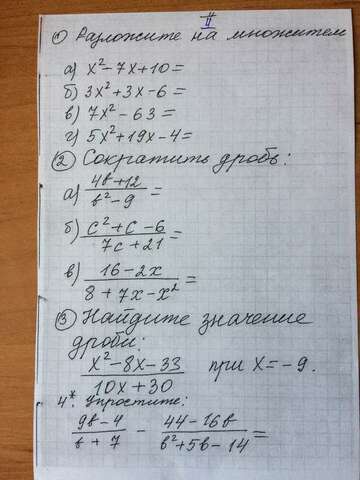 II
① Разложите на множители
а) x²-7x+10=
б) 3x²+3x-6=
в) 7x²-63=
г) 5x²+19x-4=
② Сократить дробь:
а) (4в+12)/(в²-9) =
б) (c²+c-6)/(7c+21) =
в) (16-2x)/(8+7x-x²) =
③ Найдите значение
дроби:
(x²-8x-33)/(10x+30) при x=-9.
4*. Упростите:
(9в-4)/(в+7) - (44-16в)/(в²+5в-14) =